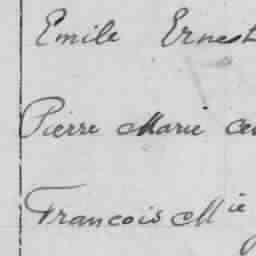 Emile Ernest
Pierre Marie
Francois Mie